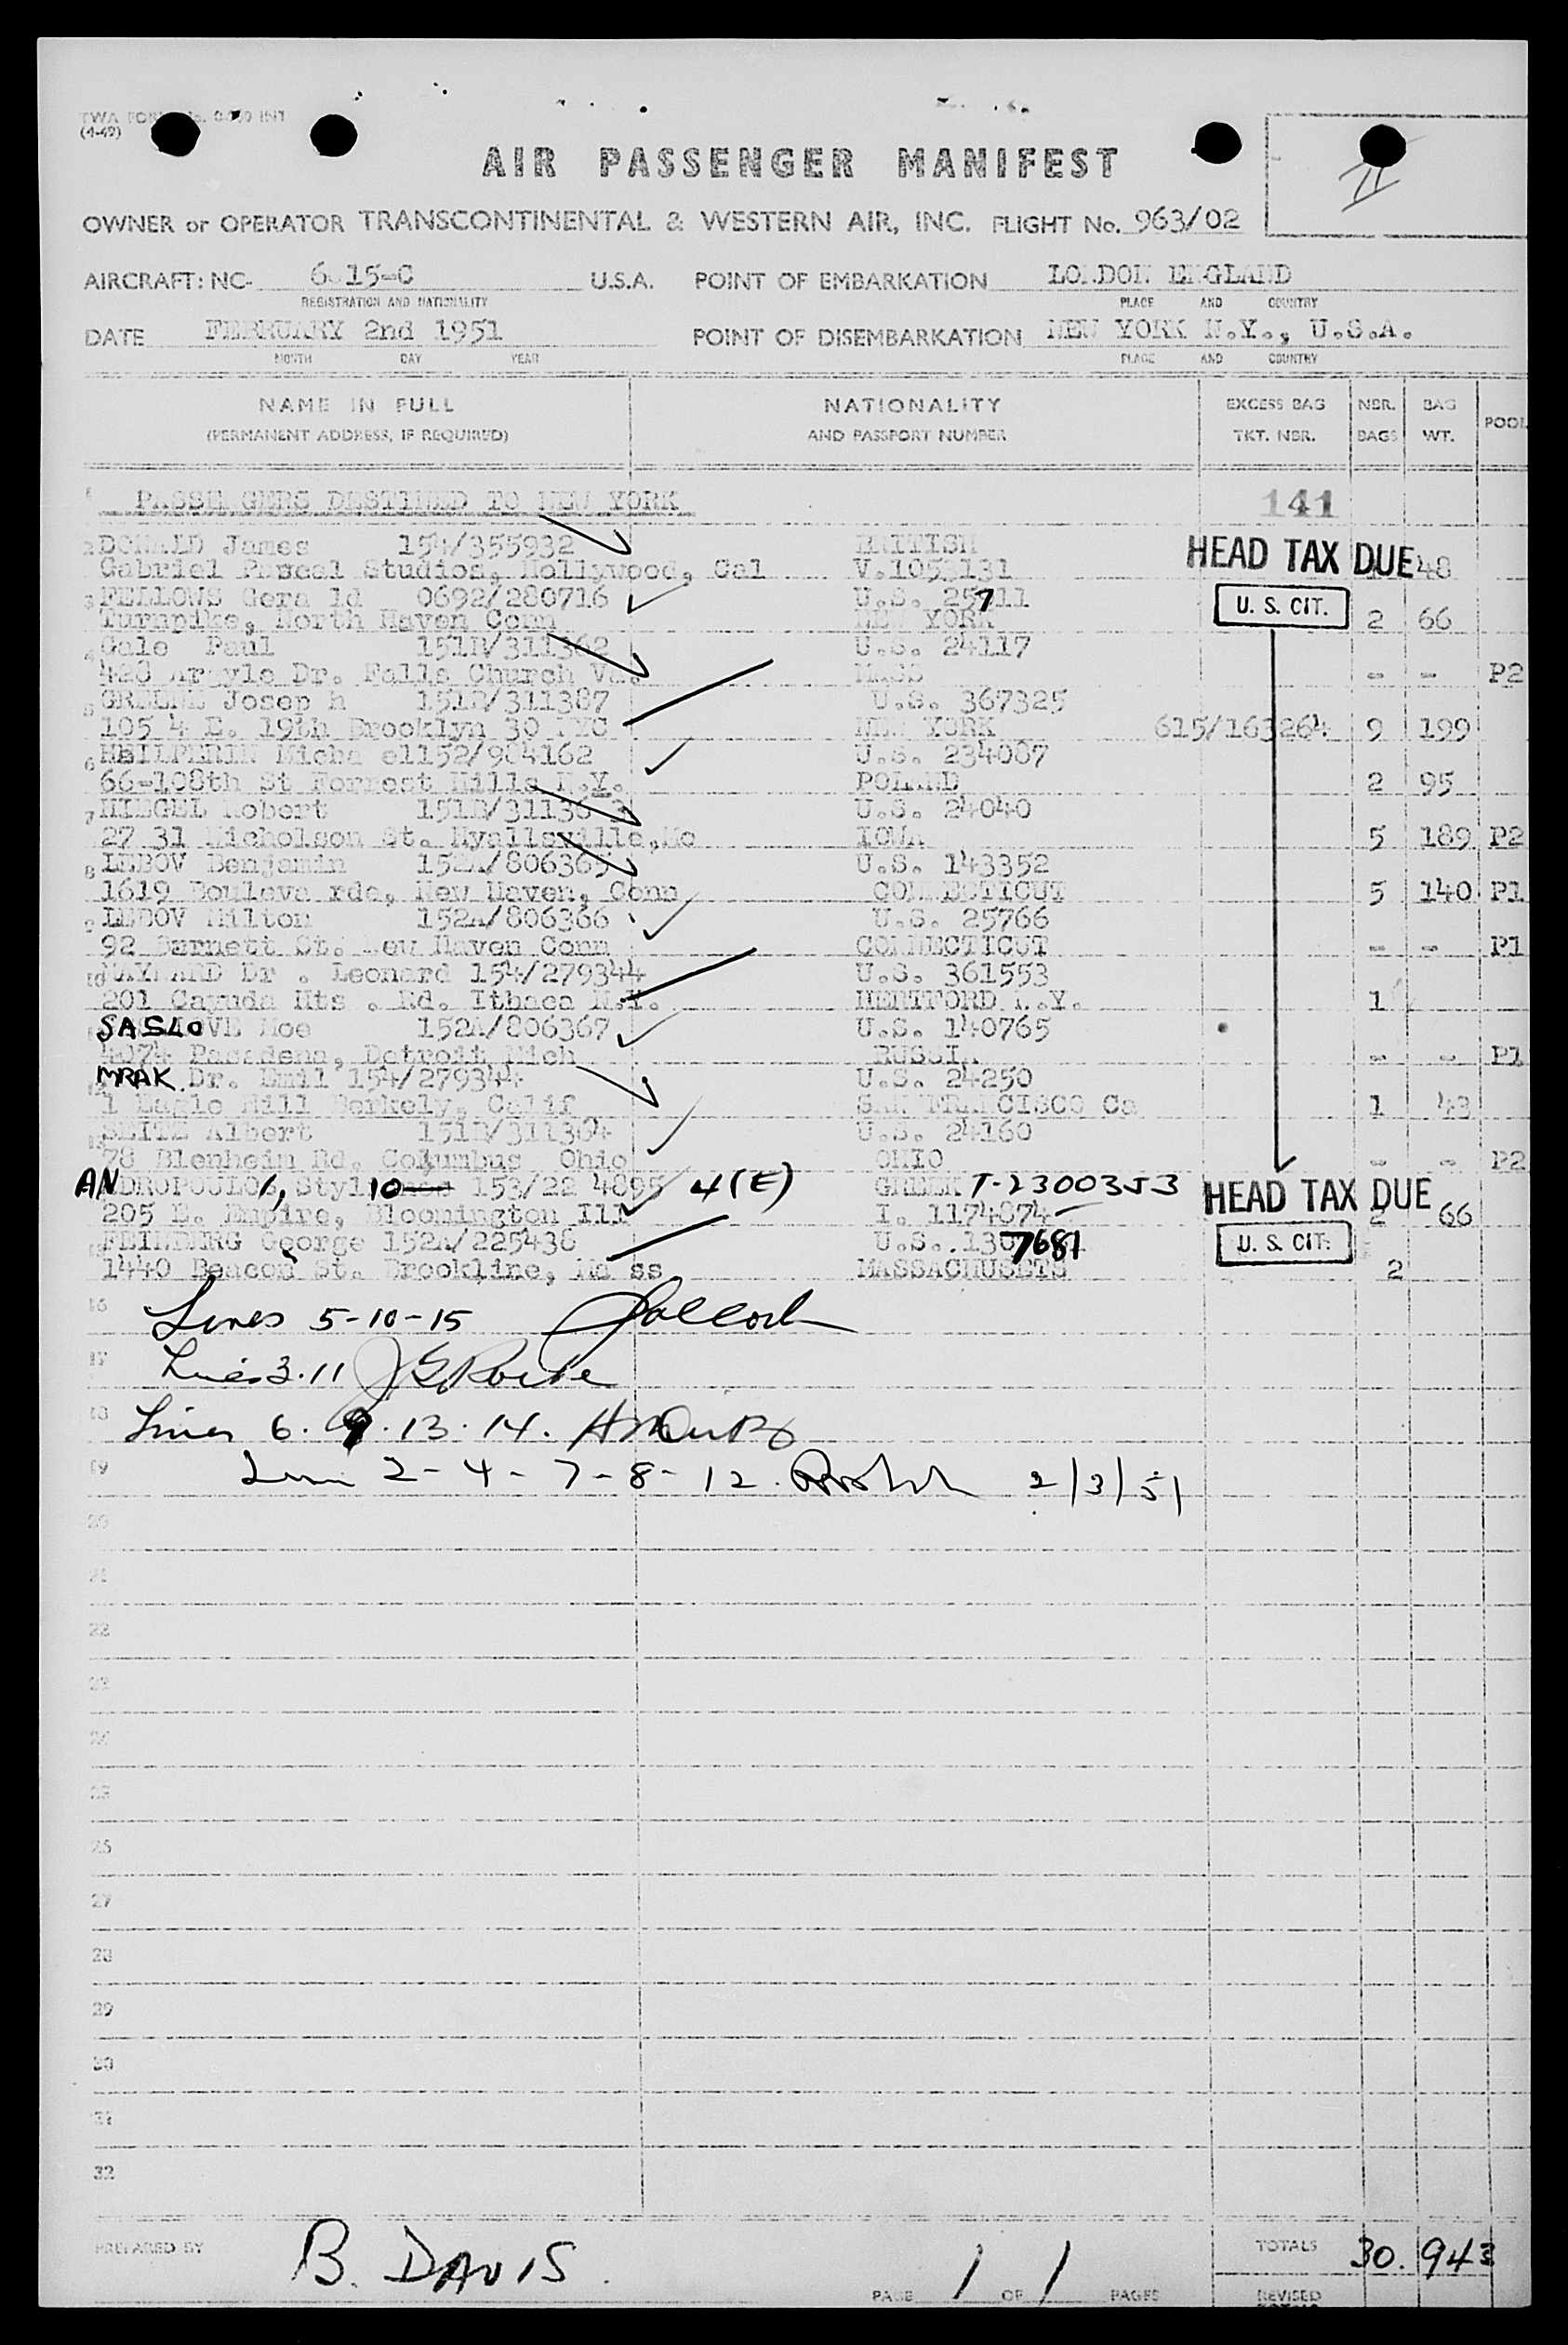 (4-49)
AIR PASSENGER MANIFEST
OWNER or OPERATOR TRANSCONTINENTAL & WESTERN AIR, INC. FLIGHT No. 963/02
AIRCRAFT: NC- 6 15-C U.S.A. POINT OF EMBARKATION LONDON ENGLAND
REGISTRATION AND NATIONALITY PLACE AND COUNTRY
DATE FEBRUARY 2nd 1951 POINT OF DISEMBARKATION NEW YORK N.Y., U.S.A.
MONTH DAY YEAR PLACE AND COUNTRY
NAME IN FULL NATIONALITY EXCESS BAG NBR. BAG
(PERMANENT ADDRESS, IF REQUIRED) AND PASSPORT NUMBER TKT. NBR. BAGS WT. POOL
1 PASSENGERS DESTINED TO NEW YORK 141
2 DONALD James 154/355932 BRITISH HEAD TAX DUE
Gabriel Pascal Studios, Hollywood, Cal V.1053131 48
3 FELLOWS Gera ld 0692/280716 U.S. 25711 U. S. CIT.
Turnpike, North Haven Conn NEW YORK 2 66
4 Gale Paul 151B/311362 U.S. 24117
428 Argyle Dr. Falls Church Va. MASS - - P2
5 GREENE Josep h 151B/311387 U.S. 367325
105 4 E. 19th Brooklyn 30 NYC NEW YORK 615/163264 9 199
6 HEILPERIN Micha el152/904162 U.S. 234087
66-108th St Forrest Hills N.Y. POLAND 2 95
7 HIEGEL Robert 151B/31136 3 U.S. 24040
27 31 Nicholson St. Hyallsville, IOWA 5 189 P2
8 LEBOV Benjamin 152A/806365 U.S. 143352
1619 Bouleva rde, New Haven, Conn CONNECTICUT 5 140 P1
9 LEBOV Milton 152A/806366 U.S. 25766
92 Barnett St. New Haven Conn CONNECTICUT - - P1
10 MAYNARD Dr . Leonard 154/279344 U.S. 361553
201 Cayuda Hts . Rd. Ithaca N.Y. HERTFORD N.Y. 1
SASLOVE Moe 152A/806367 U.S. 140765
4074 Pasadena, Detroit Mich RUSSIA - - P1
MRAK Dr. Emil 154/279344 U.S. 24250
1 Eagle Hill Berkely, Calif SAN FRANCISCO Ca 1 43
SEITZ Albert 151B/311364 U.S. 24160
78 Blenheim Rd. Columbus Ohio OHIO - - P2
ANDROPOULOS, Styl 10 153/22 4895 4(E) GREEK T-2300353 HEAD TAX DUE
205 E. Empire, Bloomington Ill I. 1174874 2 66
FEINBERG George 152A/225438 U.S. 7681 U. S. CIT.
1440 Beacon St. Brookline, Ma ss MASSACHUSETS 2
16 Lines 5-10-15
17 Lines 3.11
18 Lines 6. 9. 13. 14.
19 Line 2-4-7-8-12. 2/3/51
20
21
22
23
24
25
26
27
28
29
30
31
32
PREPARED BY B. DAVIS TOTALS 30. 943
PAGE 1 OF 1 PAGES REVISED